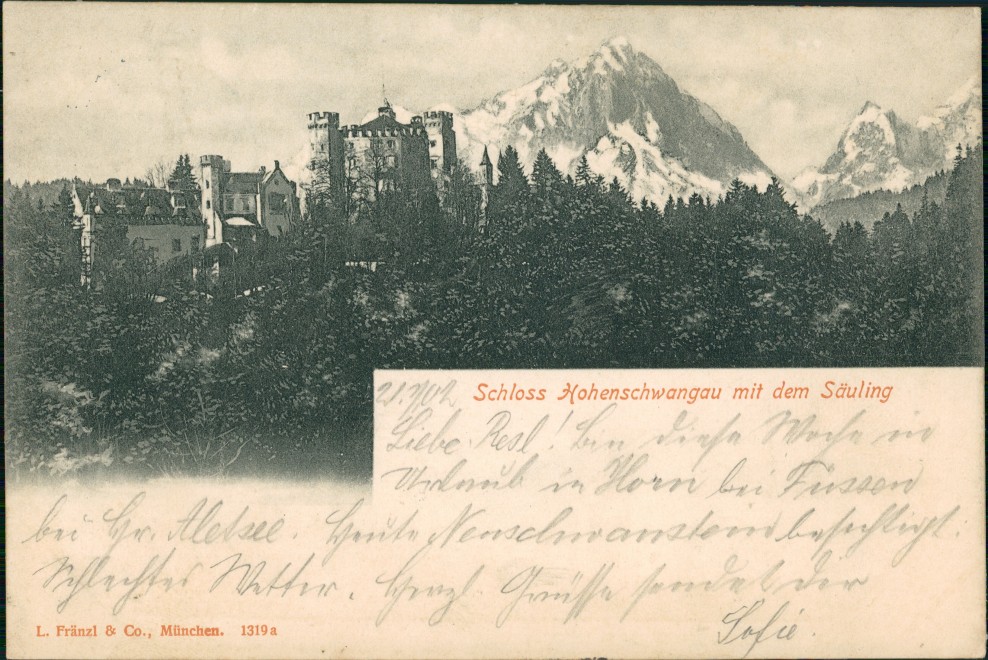 Schloss Hohenschwangau mit dem Säuling
Liebe Resl! Bin diese Woche in
Urlaub in Horn bei Füssen
bei Hr. Aletsee. Heute Neuschwanstein besichtigt.
Schlechtes Wetter. Herzl. Grüsse sendet der
Sofie.
L. Fränzl & Co., München. 1319a